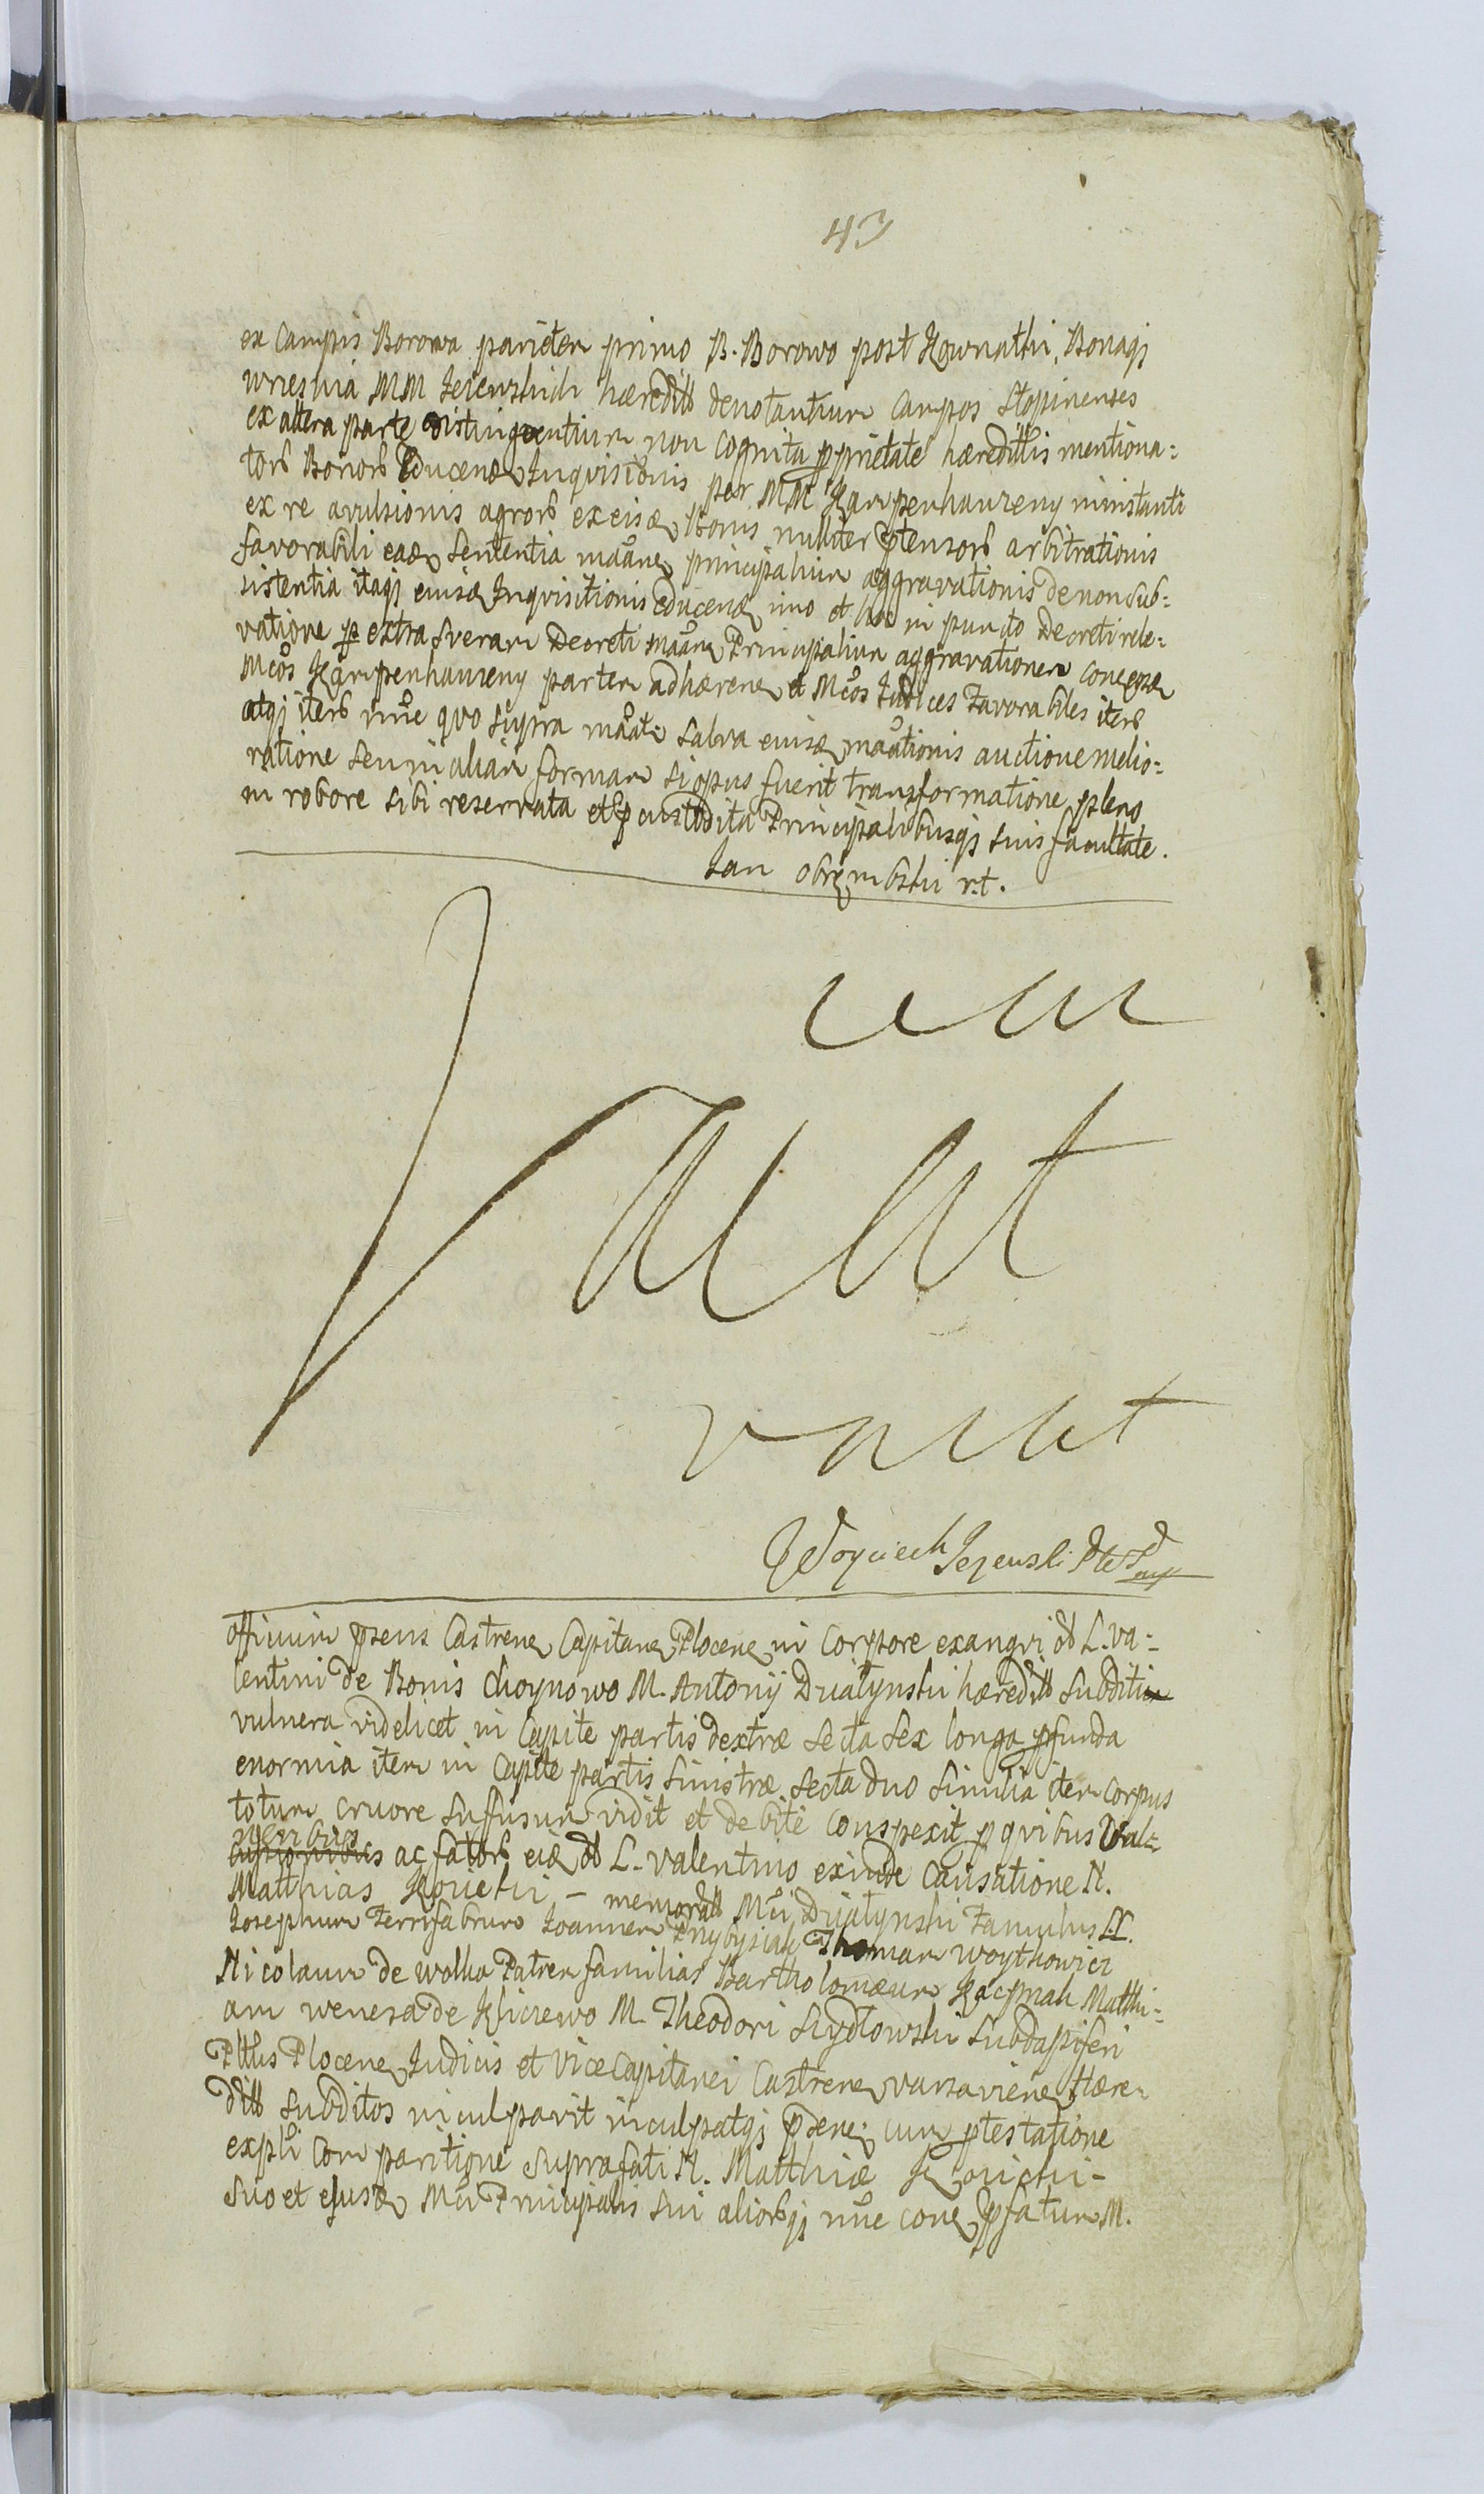 43
ex Campis Borowa pariter primo B. Borowo post Kownathi, Bonaqȝ
wriesnia MM Jezewskich hæreditt denotantium Campos Stopinenses
ex altera parte distingventium non cognita pprietate hæredittis mentiona=
torb Bonorb Educenæ Inqvisitionis per MM Karpenhaureny ministanti
ex re avulsionis agrorb ex eisæ Bonis nulliter ptensorb arbitrationis
favorabili eaæ Sententia maane principalium aggravationis de non sub=
sistentia itaqȝ eiusæ Inqvisitionis educenæ imo et hoc in puncto Decreti rele=
vatione p extrasveram Decreti maane Principalium aggravationem
Mcos Karpenhaureny partem adhærene et Mcos Judices Favorabiles iterb
atqȝ iterb nne qvo supra maat salva eiusæ maationis auctione melio=
ratione seu in aliam formam si opus fuerit transformatione pleno
in robore sibi reservata et pcustodita Principalibusqȝ suis facultate.
Jan obrembski r.t.
Vacat
Woyciech Jezewski
Officium psens Castrene Capitane Plocene in Corpore exangvi ol L. Va=
lentini de Bonis Choynowo M. Antonij Działynski hæreditt Subditi
vulnera videlicet in Capite partis dextræ Secta Sex longa pfunda
enormia item in Capite partis Sinistræ Secta duo Similia item Corpus
totum cruore Suffusum vidit et debite Conspexit p qvibus Vul=
neribus
ac fatorb eiæ ol L. Valentino exinde Causatione N.
Matthias Kozicki – memoratt Mci Działynski Famulus LL.
Josephum Ferrifabrum Joannem Przybysiak Thomam Woytkowicz
Nicolaum de Wolka Patremfamilias Bartholomæum Kaczmak Matthi=
am Wenera de Kliczewo M. Theodori Szydłowski Subdapiferi
Plttus Plocene Judicis et ViceCapitanei Castrene Varsaviene Hære=
ditt Subditos inculpavit inculpatqȝ psene cum ptestatione
expli Comparitione Suprafati N. Matthiæ Kozicki –
Suo et ejusæ Mci Principalis Sui aliorbqȝ nne cone pfatum M.